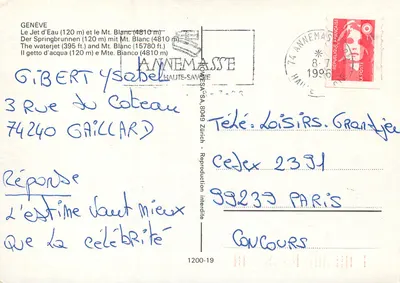 GENÈVE
Le Jet d'Eau (120 m) et le Mt. Blanc (4810 m)
Der Springbrunnen (120 m) mit Mt. Blanc (4810 m)
The waterjet (395 ft.) and Mt. Blanc (15780 ft.)
Il getto d'acqua (120 m) e Mte. Bianco (4810 m)
ANNEMASSE
HAUTE-SAVOIE
74 ANNEMASSE
8-7
1996
GIBERT Ysabel
3 Rue du Coteau
74240 GAILLARD
Réponse
L'estime vaut mieux
que la célébrité
SA, 8049 Zürich - Reproduction interdite
TéLé-LOISIRS. Grand jeu
Cedex 2391
99239 PARIS
CONCOURS
1200-19